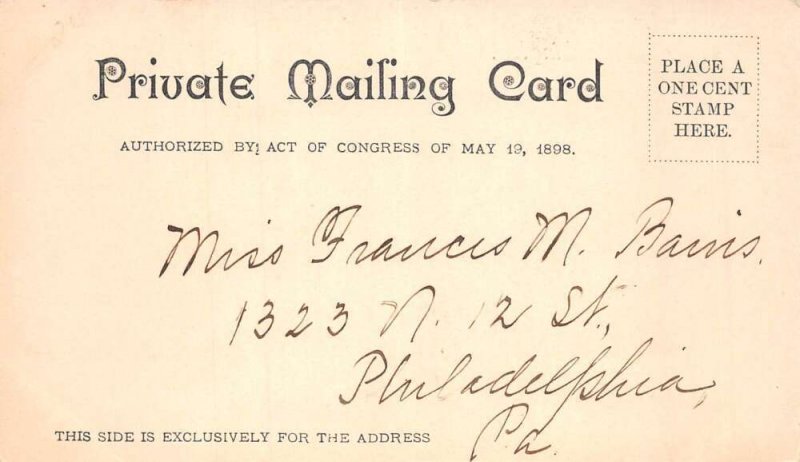 Private Mailing Card
PLACE A
ONE CENT
STAMP
HERE.
AUTHORIZED BY ACT OF CONGRESS OF MAY 19, 1898.
Miss Frances M.
1323 N. 12 St.,
Philadelphia,
Pa.
THIS SIDE IS EXCLUSIVELY FOR THE ADDRESS